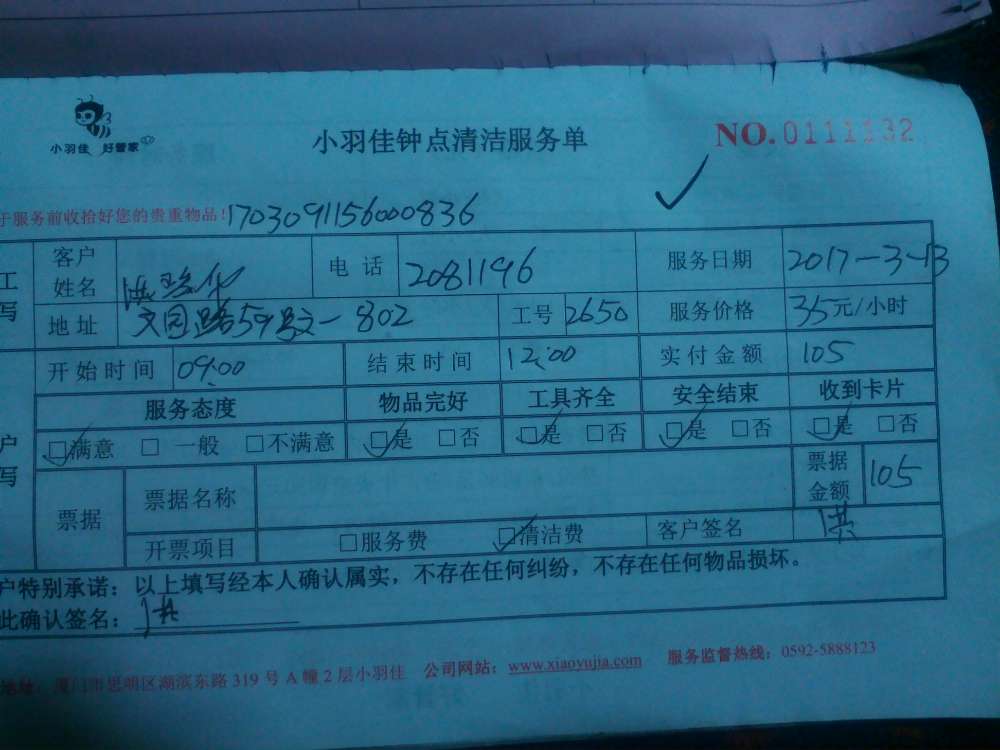 小羽佳 好管家
小羽佳钟点清洁服务单
NO.0111132
于服务前收拾好您的贵重物品！1703091156000836
工 客户姓名 洪 电话 2081196 服务日期 2017-3-13
写 地址 文园路59号之一802 工号 2650 服务价格 35元/小时
开始时间 09:00 结束时间 12:00 实付金额 105
服务态度 物品完好 工具齐全 安全结束 收到卡片
户 ☑满意 □一般 □不满意 ☑是 □否 ☑是 □否 ☑是 □否 ☑是 □否
写 票据 票据名称 票据金额 105
开票项目 □服务费 ☑清洁费 客户签名 洪
户特别承诺：以上填写经本人确认属实，不存在任何纠纷，不存在任何物品损坏。
此确认签名：洪
地址：厦门市思明区湖滨东路319号A幢2层小羽佳 公司网站：www.xiaoyujia.com 服务监督热线：0592-5888123